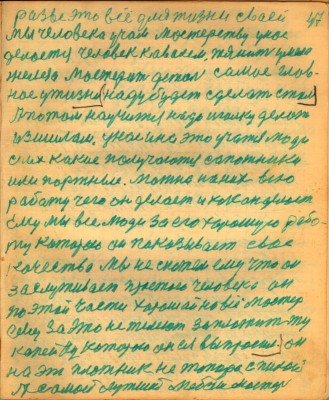 разве это всё для жизни своей 47
мы человека учим мостерству умее
делоеть человек
железа мостерит самое глов-
ное у жизни надо будет сделать
а потом научить надо иголку делоть
и это учать люди
с их какие получаются сапожники
или портные. можно на них всю
работу чего он делоет и как он делоет
ему мы все люди за его хорошую рабо-
ту которою он показывает свое
качество мы не скажем ему что он
заслуживает простого человека он
по этой части хороший новый мостер
ему за это не
копейку которою он выпросил. он
на это плотник не топора с пилой
а самой лутшей мостер